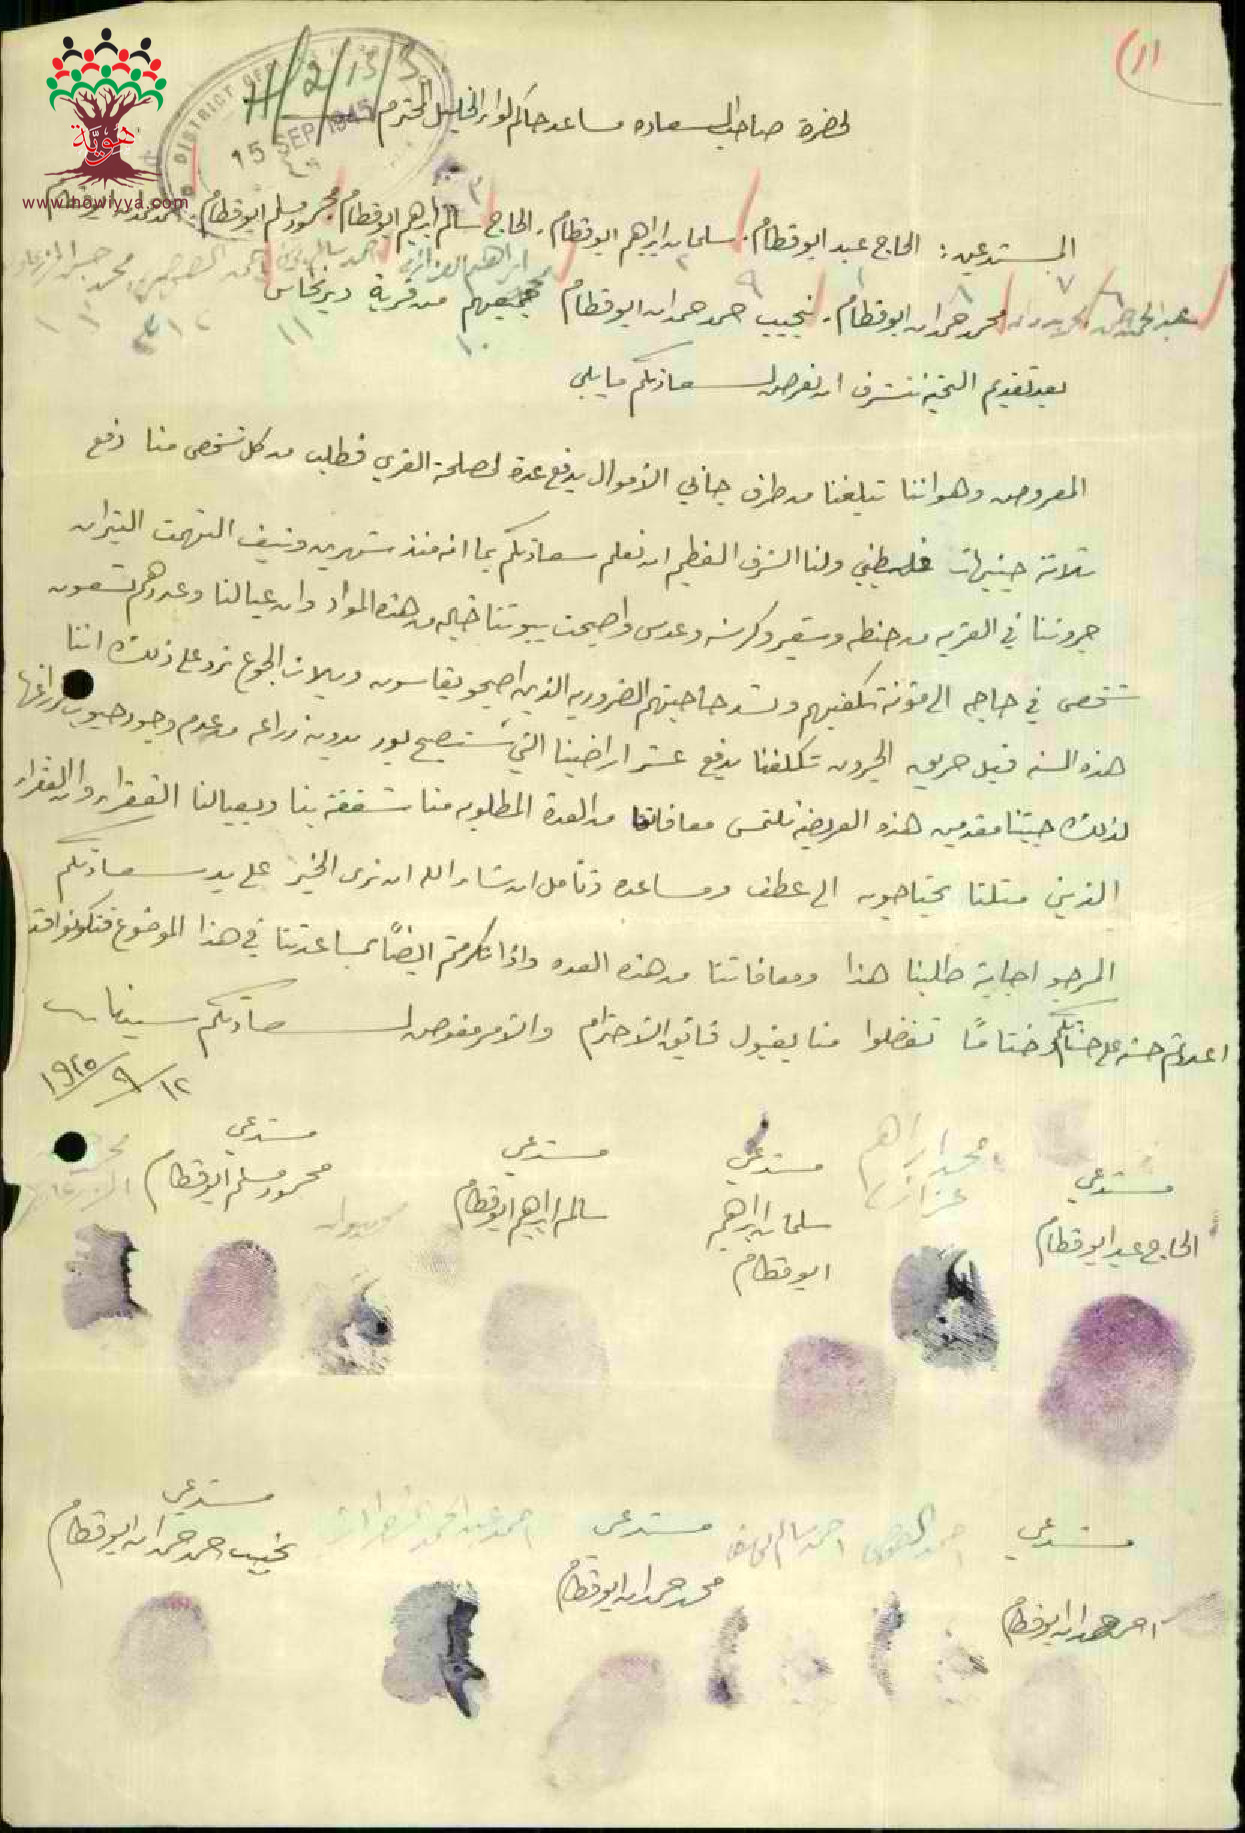 (١١)
11/2/13/3
DISTRICT OFF
15 SEP 1945
هوية
www.howiyya.com
لحضرة صاحب السعاده مساعد حاكم لواء الخليل المحترم
المستدعين: الحاج عبد ابو قطام. سلمان ابراهيم ابو قطام. الحاج سالم ابراهيم ابو قطام محمود مسلم ابو قطام.
ابراهيم العزازي
محمد حمدان ابو قطام. نجيب احمد حمدان ابو قطام جميعهم من قرية دير نخاس
بعد تقديم التحية نتشرف ان نعرض لسعادتكم ما يلي
المعروض وهو اننا تبلغنا من طرف جابي الاموال بدفع عدة لمصلحة القرى فطلب من كل شخص منا دفع
ثلاثة جنيهات فلسطيني ولنا الشرف العظيم ان نعلم سعادتكم بما انه منذ شهرين ونيف التهمت النيران
جروننا في القريه من حنطه وشعير وكرسنه وعدس واصبحت بيوتنا خاليه من هذه المواد وان عيالنا وعددهم تسعون
شخص في حاجه الى مؤنة تكفيهم وتسد حاجيتهم الضروريه الذين اصبحو يقاسون ويلات الجوع نزد على ذلك اننا
هذه السنه قبل حريق الجرون تكلفنا بدفع عشر اراضينا التي ستصبح بور بدون زراعه من عدم وجود حبوب لزراعتها
لذلك جيئنا مقدمين هذه العريضه نلتمس معافاتنا من العدة المطلوبه منا شفقة بنا وبعيالنا الفقراء وان الفقراء
الذين مثلنا يحتاجون الى عطف ومساعده ونأمل ان شاء الله ان نرى الخير على يد سعادتكم
المرجو اجابة طلبنا هذا ومعافاتنا من هذه العده واذا تكرمتم ايضاً بمساعدتنا في هذا الموضوع فتكونوا قد
حسنه على حسناتكم وختاماً تفضلوا منا بقبول فائق الاحترام والامر مفوض لسعادتكم سيدنا
١٢/٩/١٩٤٥
مستدعي
الحاج عبد ابو قطام
محمد ابراهيم
مستدعي
سلمان ابراهيم
ابو قطام
مستدعي
سالم ابراهيم ابو قطام
مستدعي
محمود مسلم ابو قطام
مستدعي
احمد حمدان ابو قطام
احمد سالم
مستدعي
محمد حمدان ابو قطام
احمد عبد
مستدعي
نجيب احمد حمدان ابو قطام